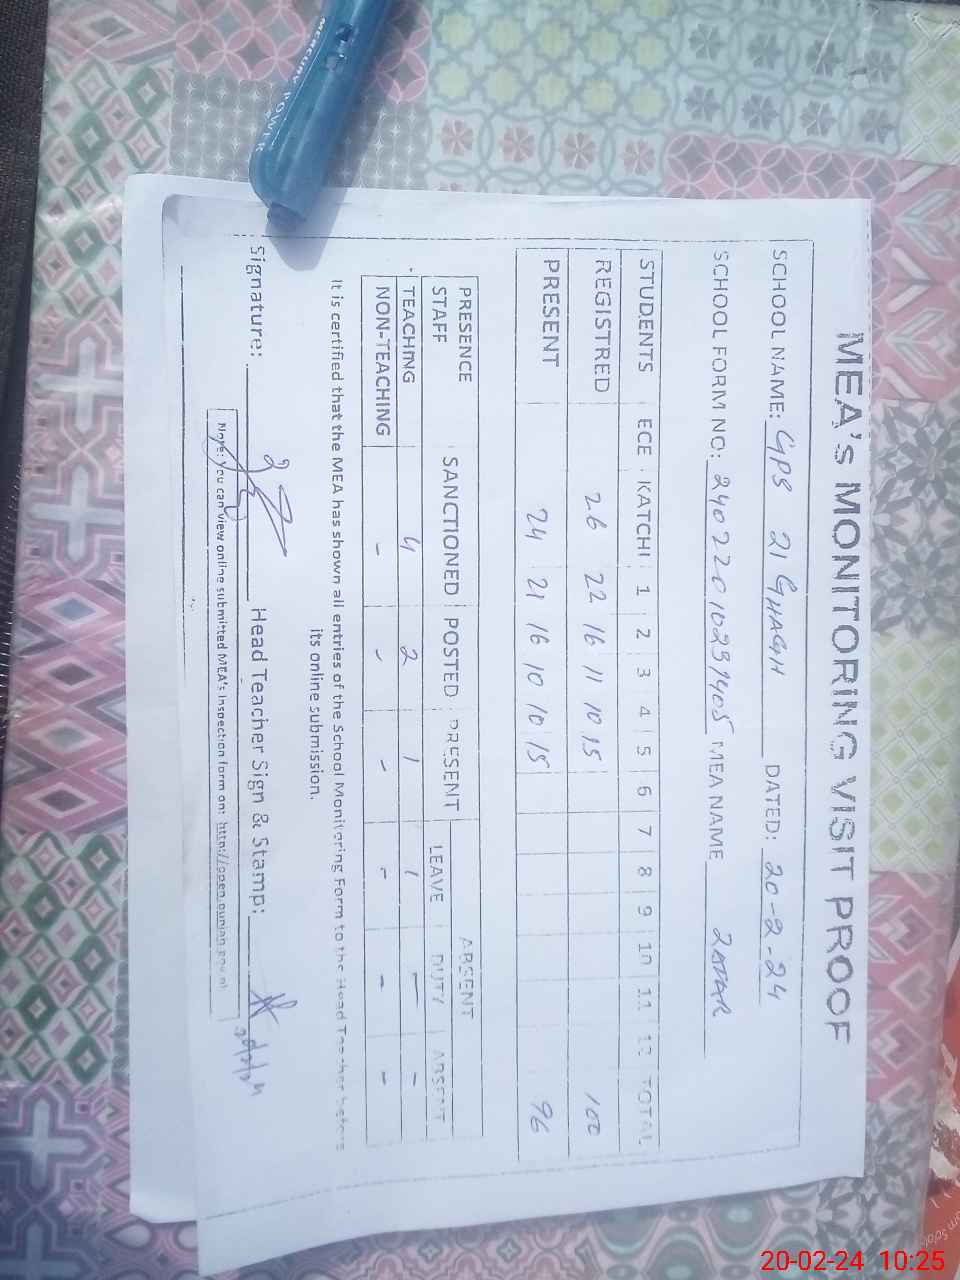 MEA's MONITORING VISIT PROOF
SCHOOL NAME: GPS 21 GHAGH DATED: 20-2-24
SCHOOL FORM NO: 24022010239405 MEA NAME ZAFAR
STUDENTS ECE KATCHI 1 2 3 4 5 6 7 8 9 10 11 12 TOTAL
REGISTRED 26 22 16 11 10 15 100
PRESENT 24 21 16 10 10 15 96
PRESENCE STAFF SANCTIONED POSTED PRESENT ABSENT
LEAVE DUTY ABSENT
TEACHING 4 2 1 1 - -
NON-TEACHING - - - - - -
It is certified that the MEA has shown all entries of the School Monitoring Form to the Head Teacher before
its online submission.
Signature: Head Teacher Sign & Stamp:
20/2/24
Note: You can view online submitted MEA's Inspection form on: http://open.punjab.gov.pk
MERCURY POWER
20-02-24 10:25